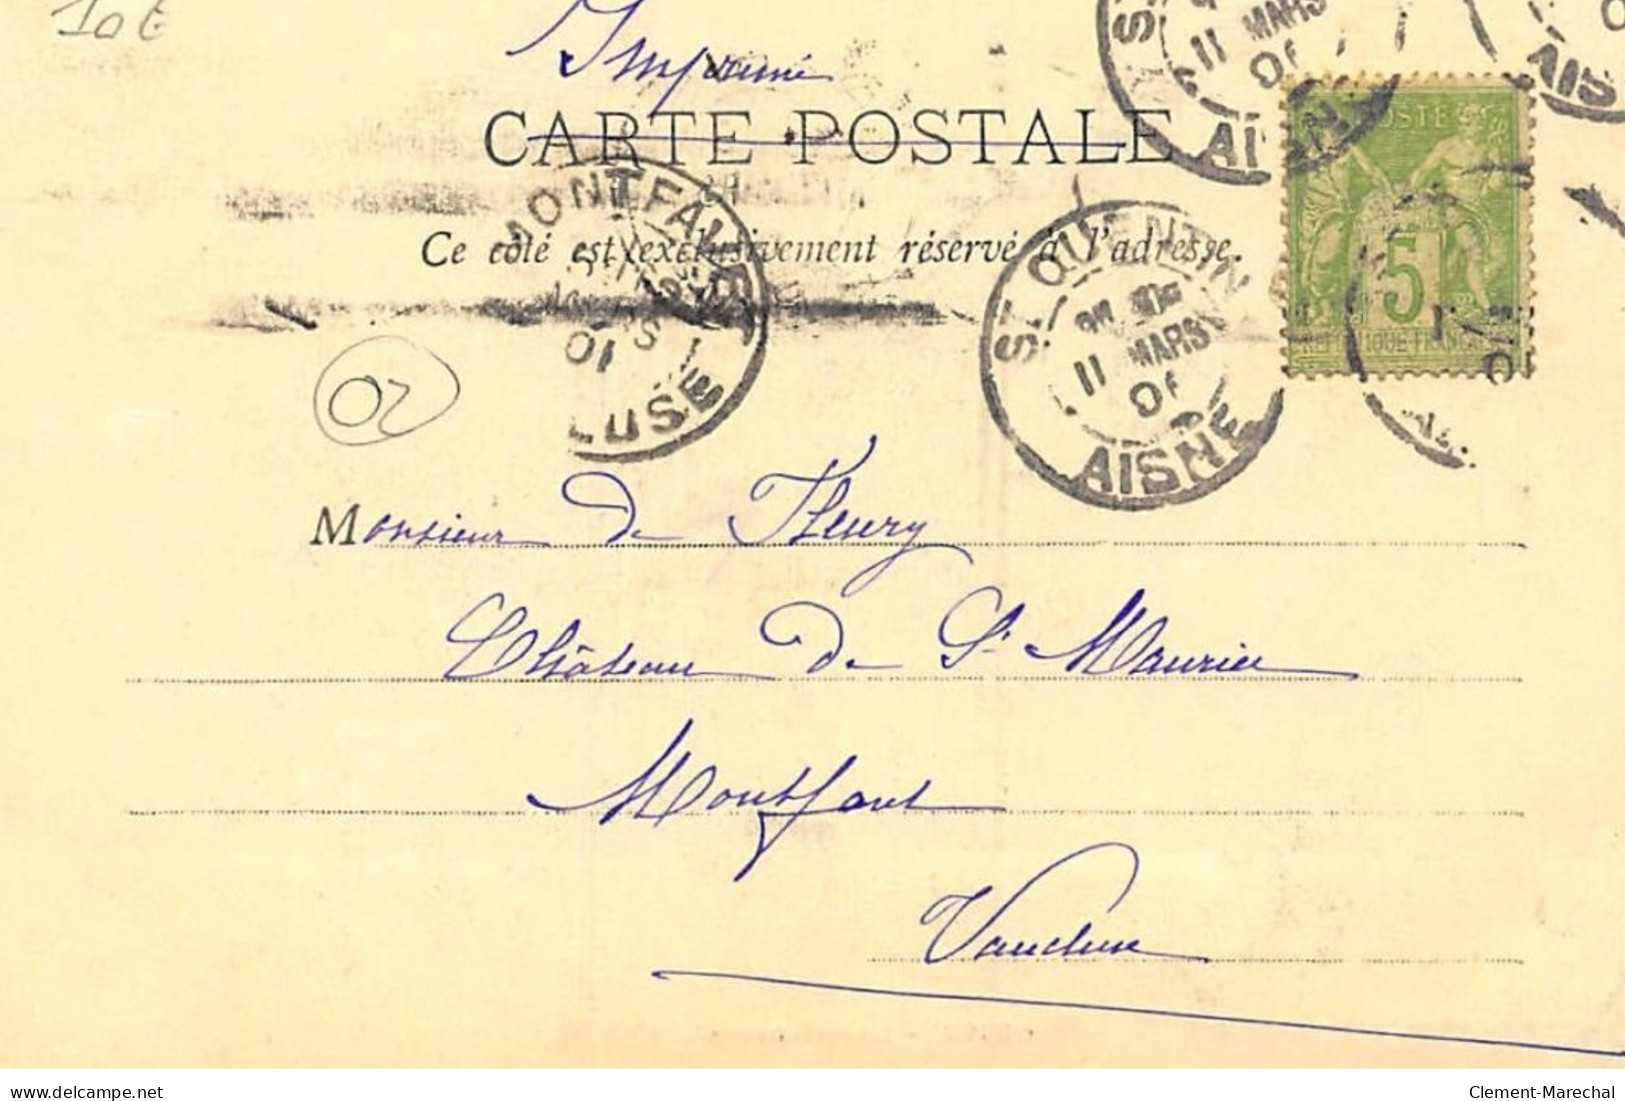 10 €
Imprimé
CARTE POSTALE
Ce côté est exclusivement réservé à l'adresse.
11 MARS 01
AISNE
AIS
POSTES
5
REPUBLIQUE FRANCAISE
MONTFAVET
01
LUSE
ST QUENTIN
11 MARS 01
AISNE
02
Monsieur de Fleury
Château de St Maurice
Montfavet
Vaucluse
www.delcampe.net
Clement-Marechal